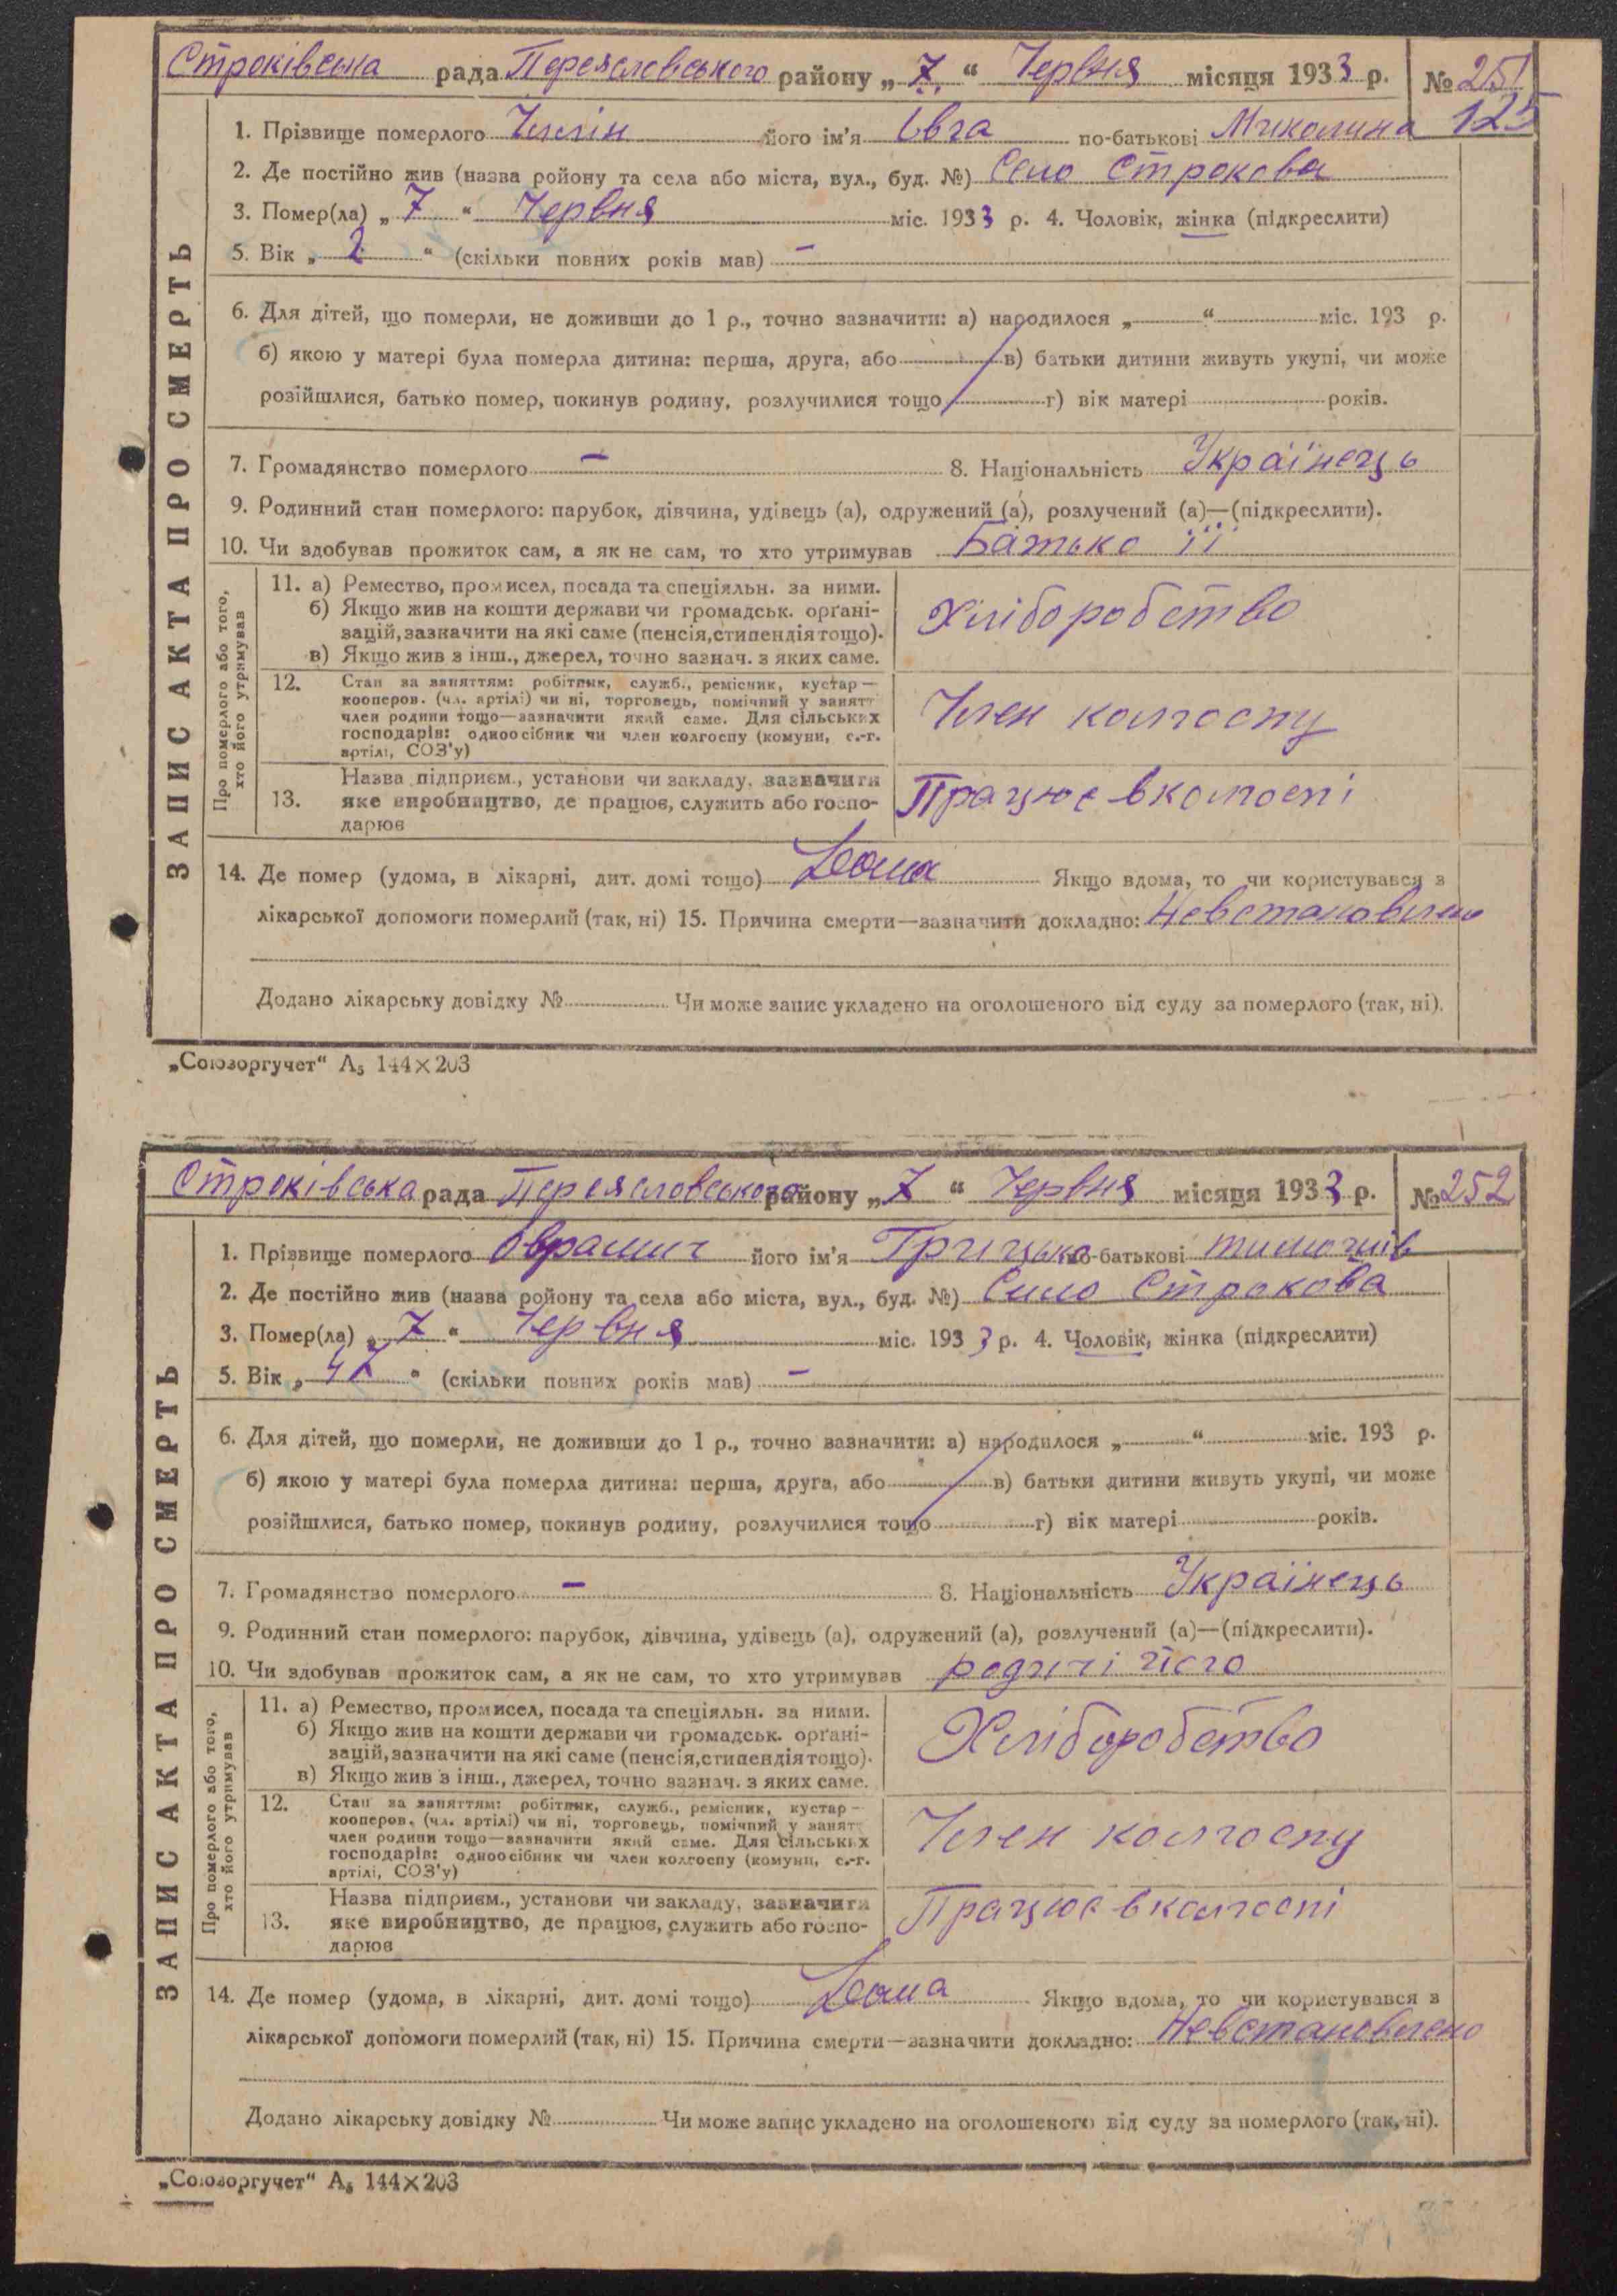 Строківська рада Переяславського району „ 7 “ Червня місяця 1933 р. № 251
125
1. Прізвище померлого його ім'я Євга по-батькові Миколина
2. Де постійно жив (назва ройону та села або міста, вул., буд. №) Село Строкова
3. Помер(ла) „ 7 “ Червня міс. 1933 р. 4. Чоловік, жінка (підкреслити)
5. Вік „ 2 “ (скільки повних років мав) –
6. Для дітей, що померли, не доживши до 1 р., точно зазначити: а) народилося „ “ міс. 193 р.
б) якою у матері була померла дитина: перша, друга, або в) батьки дитини живуть укупі, чи може
розійшлися, батько помер, покинув родину, розлучилися тощо г) вік матері років.
7. Громадянство померлого – 8. Національність Українець
9. Родинний стан померлого: парубок, дівчина, удівець (а), одружений (а), розлучений (а)—(підкреслити).
10. Чи здобував прожиток сам, а як не сам, то хто утримував Батько її
ЗАПИС АКТА ПРО СМЕРТЬ
Про померлого або того, хто його утримував
11. а) Ремество, промисел, посада та спеціяльн. за ними.
б) Якщо жив на кошти держави чи громадськ. орґані-
зацій, зазначити на які саме (пенсія, стипендія тощо).
в) Якщо жив з інш., джерел, точно зазнач. з яких саме.
Хліборобство
12. Стан за заняттям: робітник, служб., ремісник, кустар—
кооперов. (чл. артілі) чи ні, торговець, помічний у занятт
член родини тощо—зазначити який саме. Для сільських
господарів: одноосібник чи член колгоспу (комуни, с.-г.
артілі, СОЗ'у)
Член колгоспу
13. Назва підприєм., установи чи закладу, зазначити
яке виробництво, де працює, служить або госпо-
дарює
Працює в колгоспі
14. Де помер (удома, в лікарні, дит. домі тощо) Дома Якщо вдома, то чи користувався з
лікарської допомоги померлий (так, ні) 15. Причина смерти—зазначити докладно: Невстановлено
Додано лікарську довідку № Чи може запис укладено на оголошеного від суду за померлого (так, ні).
„Союзоргучет“ А₅ 144×203
Строківська рада Переяславського району „ 7 “ Червня місяця 1933 р. № 252
1. Прізвище померлого його ім'я Грицько по-батькові
2. Де постійно жив (назва ройону та села або міста, вул., буд. №) Село Строкова
3. Помер(ла) „ 7 “ Червня міс. 1933 р. 4. Чоловік, жінка (підкреслити)
5. Вік „ 47 “ (скільки повних років мав) –
6. Для дітей, що померли, не доживши до 1 р., точно зазначити: а) народилося „ “ міс. 193 р.
б) якою у матері була померла дитина: перша, друга, або в) батьки дитини живуть укупі, чи може
розійшлися, батько помер, покинув родину, розлучилися тощо г) вік матері років.
7. Громадянство померлого – 8. Національність Українець
9. Родинний стан померлого: парубок, дівчина, удівець (а), одружений (а), розлучений (а)—(підкреслити).
10. Чи здобував прожиток сам, а як не сам, то хто утримував родичі його
ЗАПИС АКТА ПРО СМЕРТЬ
Про померлого або того, хто його утримував
11. а) Ремество, промисел, посада та спеціяльн. за ними.
б) Якщо жив на кошти держави чи громадськ. орґані-
зацій, зазначити на які саме (пенсія, стипендія тощо).
в) Якщо жив з інш., джерел, точно зазнач. з яких саме.
Хліборобство
12. Стан за заняттям: робітник, служб., ремісник, кустар—
кооперов. (чл. артілі) чи ні, торговець, помічний у занятт
член родини тощо—зазначити який саме. Для сільських
господарів: одноосібник чи член колгоспу (комуни, с.-г.
артілі, СОЗ'у)
Член колгоспу
13. Назва підприєм., установи чи закладу, зазначити
яке виробництво, де працює, служить або госпо-
дарює
Працює в колгоспі
14. Де помер (удома, в лікарні, дит. домі тощо) Дома Якщо вдома, то чи користувався з
лікарської допомоги померлий (так, ні) 15. Причина смерти—зазначити докладно: Невстановлено
Додано лікарську довідку № Чи може запис укладено на оголошеного від суду за померлого (так, ні).
„Союзоргучет“ А₅ 144×203